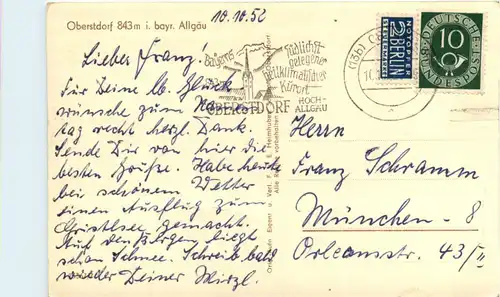 Oberstdorf 843 m i. bayr. Allgäu
10.10.52
Lieber Franz!
Für Deine lb. Glück
wünsche zum Namens
tag recht herzl. Dank.
Sende Dir von hier die
besten Grüße. Habe heute
bei schönem Wetter
einen Ausflug zum
Christlsee gemacht.
Auf den Bergen liegt
schon Schnee. Schreib bald
wieder Deiner Wirzl.
Bayerns
südlichst
gelegener
heilklimatischer
Kurort
OBERSTDORF
HOCH-
ALLGÄU
(13b)
NOTOPFER
2 BERLIN
STEUERMARKE
DEUTSCHE
BUNDESPOST
10
Herrn
Franz Schramm
München - 8
Orleansstr. 43/II